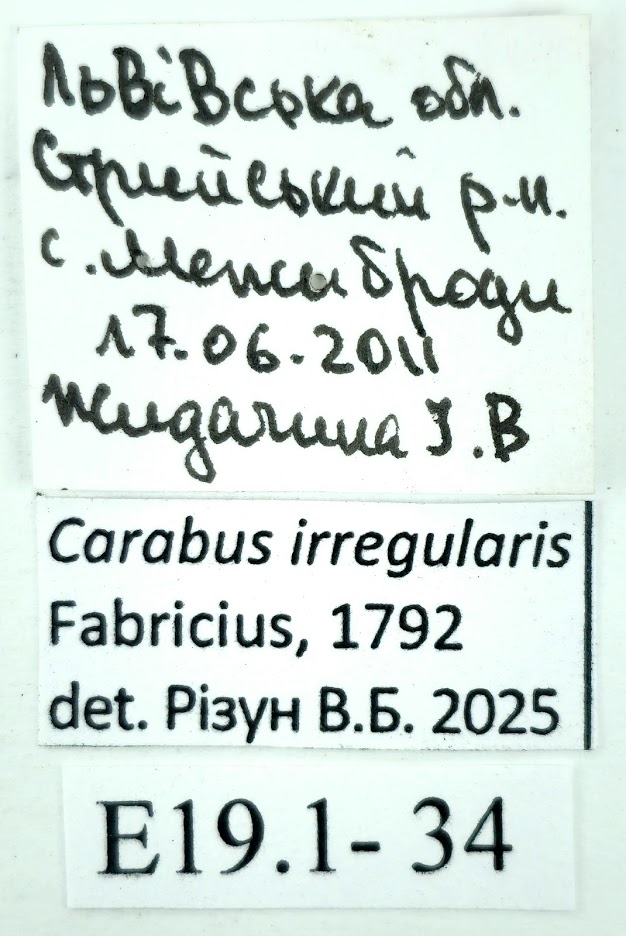 Львівська обл.
Стрийський р-н.
с. Межиброди
17.06-2011
Жидачина І.В
Carabus irregularis
Fabricius, 1792
det. Різун В.Б. 2025
E19.1- 34